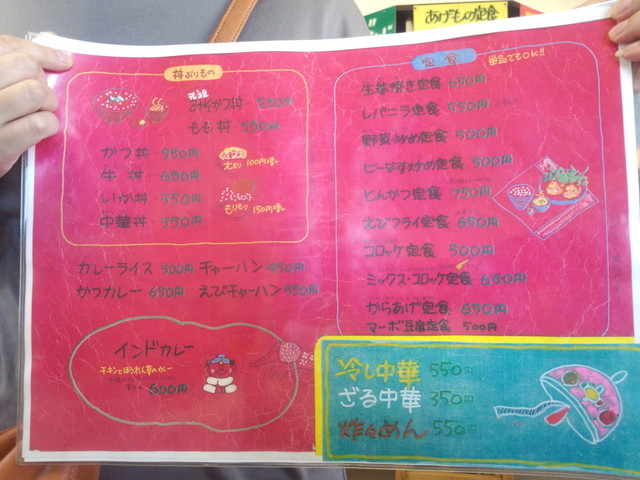 あげもの定食
丼ぶりもの
元祖
みそかつ丼 550円
もも丼 550円
かつ丼 550円
牛丼 650円
いか丼 550円
中華丼 550円
大もり 100円増し
もりもり 150円増し
カレーライス 500円 チャーハン 450円
かつカレー 650円 えびチャーハン 550円
インドカレー
チキンとほうれん草のカレー
600円
定食
生姜焼き定食 650円
レバニラ定食 550円
野菜炒め定食 500円
ピーなす炒め定食 500円
とんかつ定食 750円
えびフライ定食 650円
コロッケ定食 500円
ミックス・コロッケ定食 650円
からあげ定食 650円
マーボ豆腐定食 500円
冷し中華 550円
ざる中華 350円
炸々めん 550円